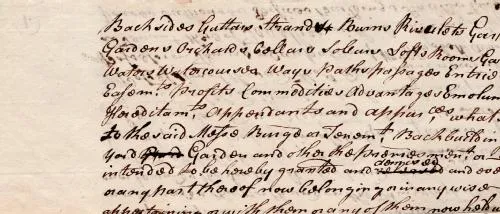 Backsides Guttars Strands Burns Rivulets Gar
Gardens Orchards Cellars Solears Lofts Rooms Ga
Waters Watercourses Ways Paths passages Entrie
Easem.ts Profits Commodities Advantages Emolum
Hereditam.ts Appendants and appur.ces what
to the said Messe Burgage or Tenem.t Backbuildin
yard Garden and other the premes ment. a
intended to be hereby granted and demised and eve
or any part thereof now belonging or in any wise
appertaining or with them or any of them now held